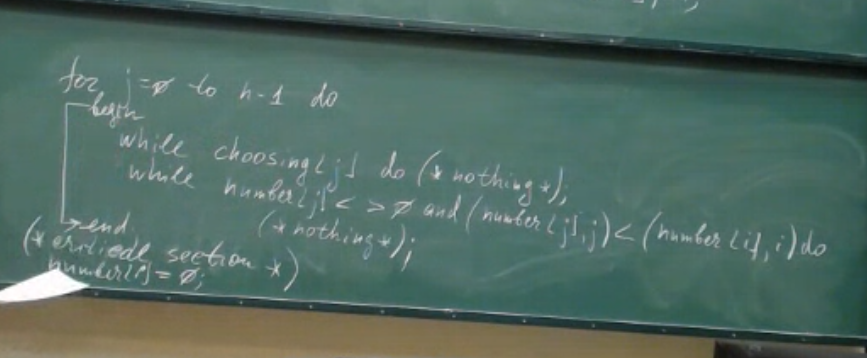 for j=ø to n-1 do
begin
while choosing[j] do (* nothing *);
while number[j] < > ø and (number[j],j) < (number[i],i) do
(* nothing *);
end
(* critical section *)
number[i] = ø;